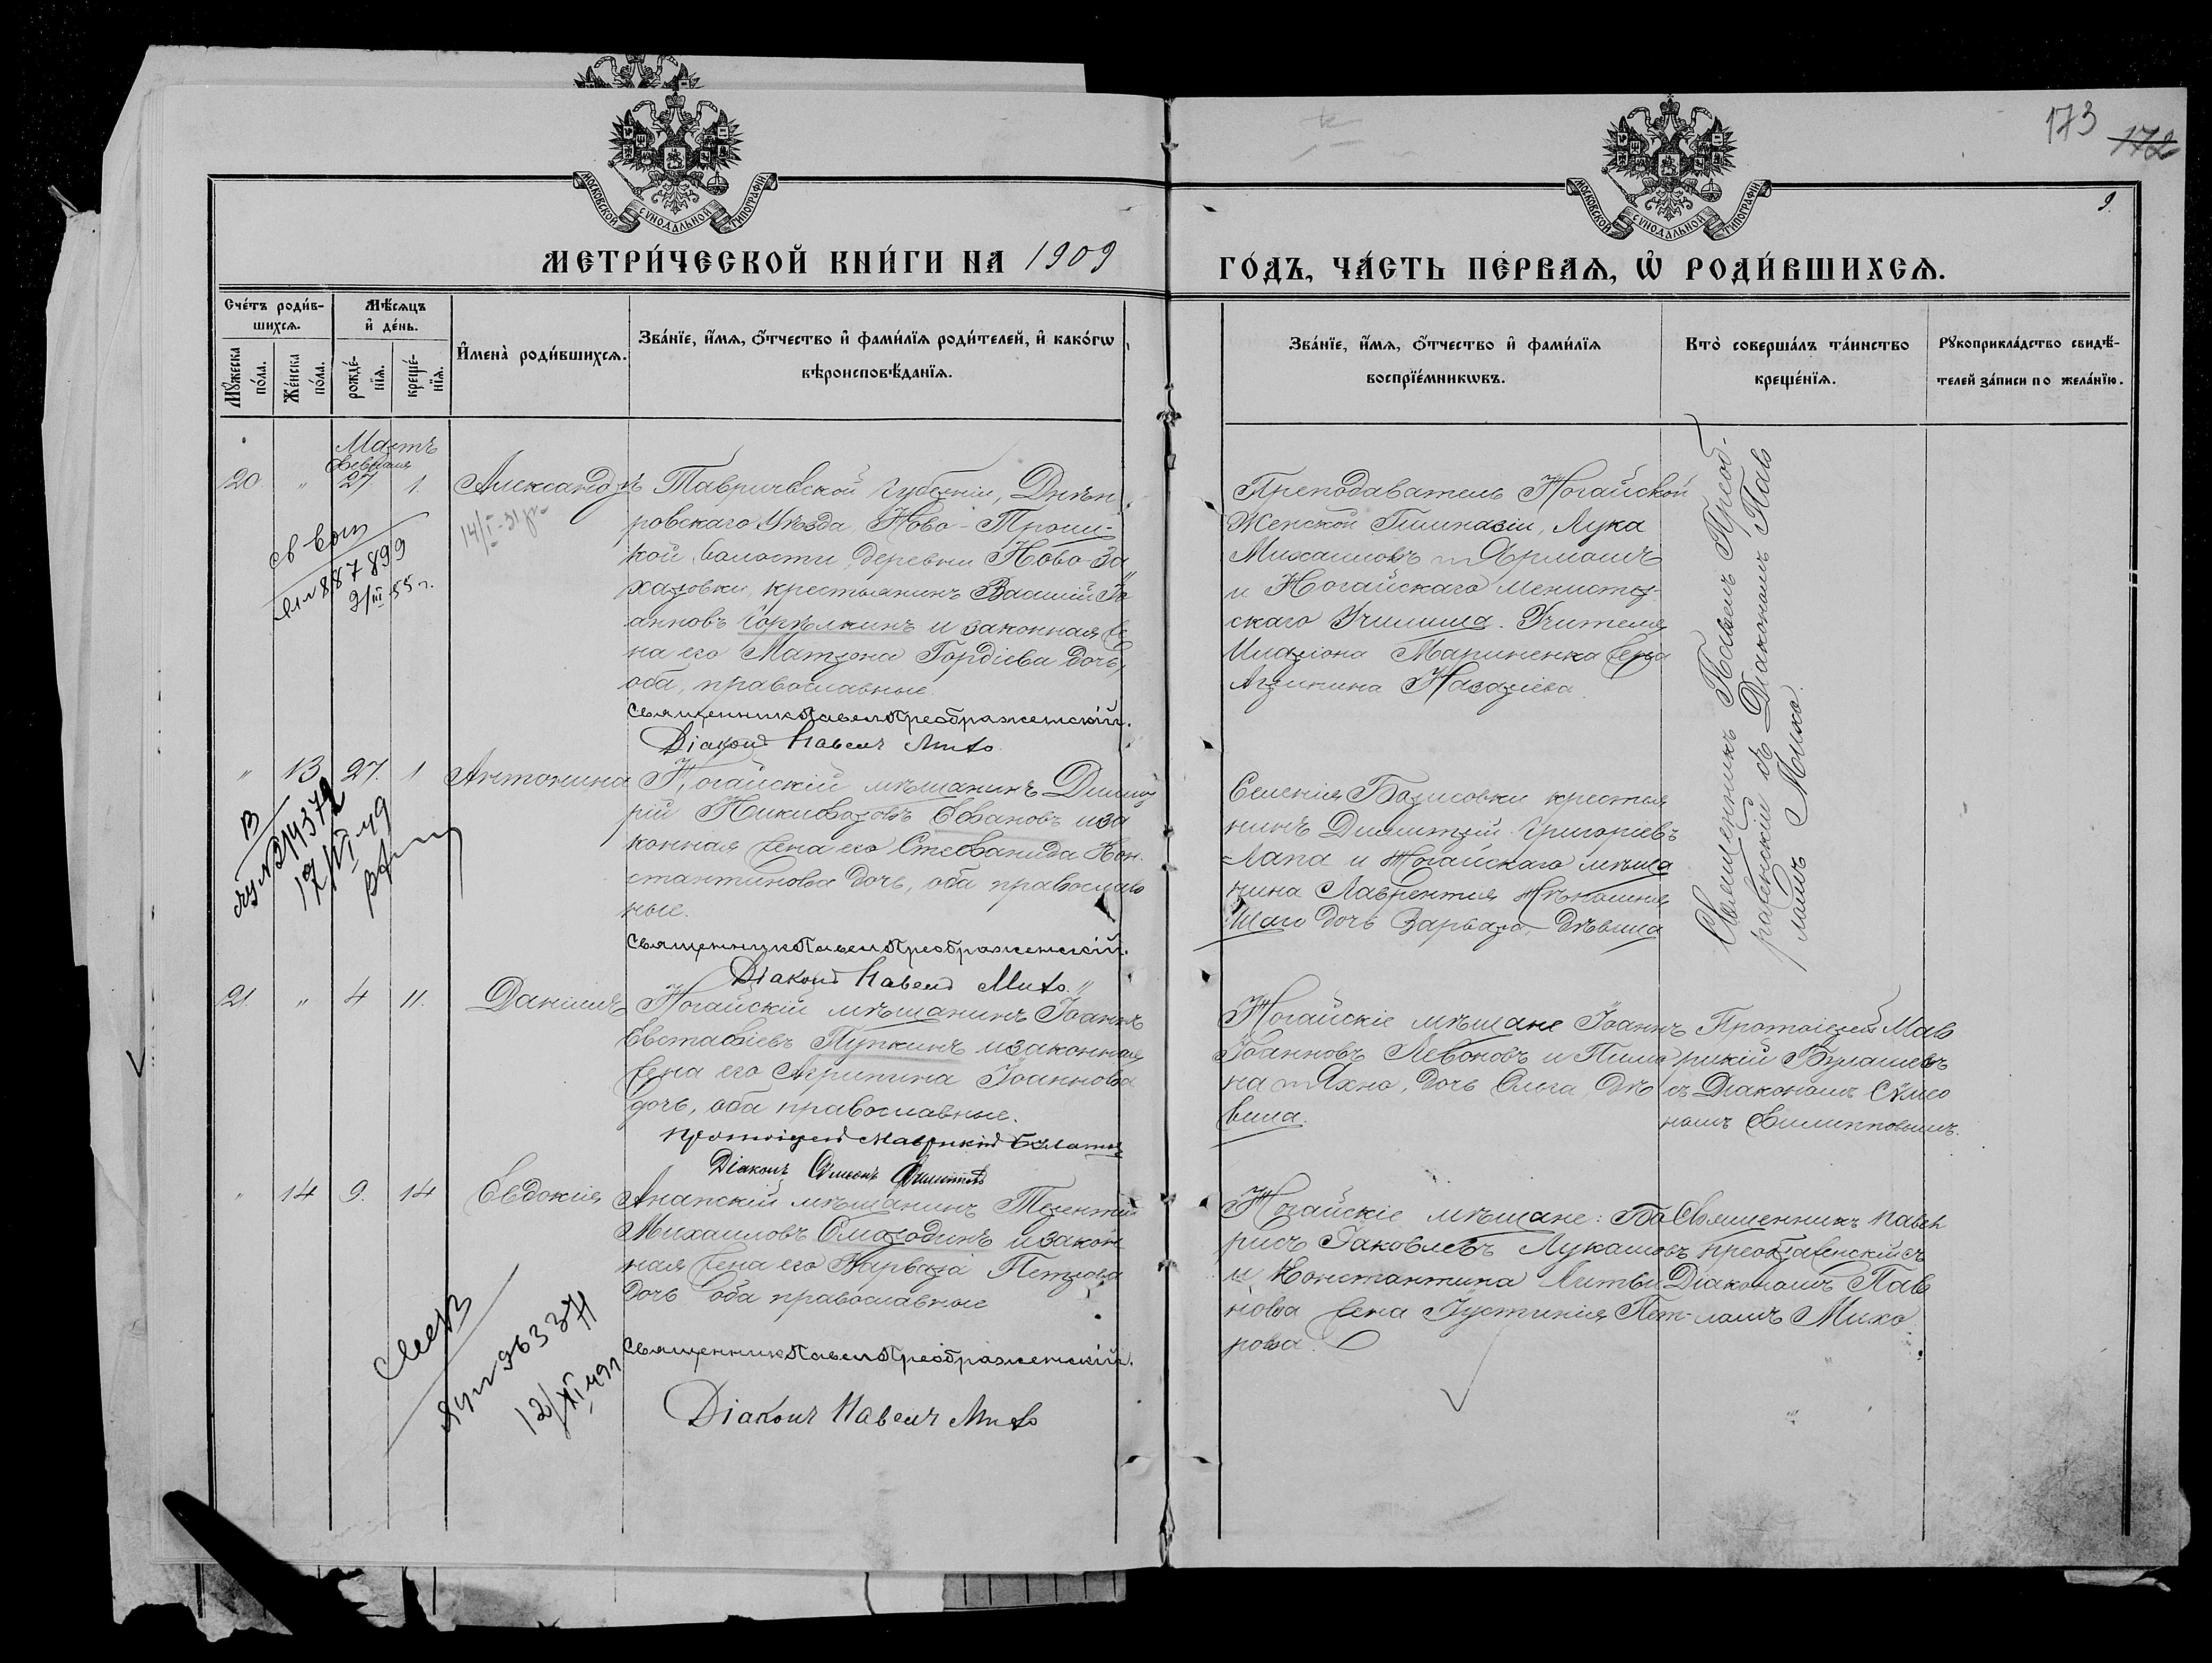 МОСКОВСКОЙ СУНОДАЛЬНОЙ ТИПОГРАФІИ
МОСКОВСКОЙ СУНОДАЛЬНОЙ ТИПОГРАФІИ
173 172
9.
МЕТРИ́ЧЕСКОЙ КНИ́ГИ НА 1909
ГО́ДЪ, ЧА́СТЬ ПЕ́РВАЯ, Ѡ҆ РОДИ́ВШИХСѦ.
Сче́тъ роди́в-
шихсѧ.
Мꙋ́жеска
по́ла.
Же́нска
по́ла.
Мѣ́сѧцъ
и҆ де́нь.
рожде́-
нїѧ.
креще́-
нїѧ.
И҆мена̀ роди́вшихсѧ.
Зва́нїе, и҆́мѧ, ѻ҆́тчество и҆ фами́лїѧ роди́телей, и҆ како́гѡ
вѣроисповѣ́данїѧ.
Зва́нїе, и҆́мѧ, ѻ҆́тчество и҆ фами́лїѧ
воспрїе́мникѡвъ.
Кто̀ соверша́лъ та́инство
креще́нїѧ.
Рꙋкоприкла́дство свидѣ́-
телей за́писи по жела́нїю.
Мартъ
Февраля
20. " 27 1. Александръ
14/I-31 г.
св
887899
2/III 55 г.
Таврической губерніи, Днѣп
ровскаго уѣзда, Ново-Трои-
кой волости, деревни Ново-За
харовки, крестьянинъ Василій Іо
анновъ Горѣлкинъ и законная же
на его Матрона Гордіева дочь,
оба, православные.
Священникъ Павелъ Преображенскій.
Діаконъ Павелъ Михо
Преподаватель Ногайской
Женской Гимназіи, Лука
Михаиловъ Ярмошъ
и Ногайскаго Министер-
скаго Училища Учителя
Иларіона Мариненка жена
Агрипина Назаріева.
Священникъ Павелъ Преоб-
раженскій съ Діакономъ Пав
ломъ Михо.
" 13 27. 1 Антонина
В
№ 214372
17/VI 49
Ногайскій мѣщанинъ Димит
рій Никифоровъ Ефановъ и за
конная жена его Стефанида Кон.
стантинова дочь, оба православ
ные.
Священникъ Павелъ Преображенскій.
Діаконъ Павелъ Михо.
Селенія Борисовки крестья
нинъ Димитрій Григоріевъ
Лапа и Ногайскаго мѣща
нина Лаврентія
шаго дочь Варвара, дѣвица
21. " 4 11. Даніилъ
Ногайскій мѣщанинъ Іоаннъ
Евстафіевъ Пупкинъ и законная
жена его Агрипина Іоаннова
дочь, оба православные.
Протоіерей Маврикій
Діаконъ Сѵмеонъ Филипповъ
Ногайскіе мѣщане Іоаннъ
Іоанновъ Левоновъ и Пимо
на Яхно, дочь Ольга, дѣ
вица.
Протоіерей Мав
рикій
съ Діакономъ Сѵмео
номъ Филипповымъ.
" 14 9. 14 Евдокія
963371
12/XI 49 г
Анапскій мѣщанинъ Терентій
Михаиловъ Смородинъ и закон
ная жена его Варвара Петрова
дочь оба православные
Священникъ Павелъ Преображенскій.
Діаконъ Павелъ Михо
Ногайскіе мѣщане: Бо
рисъ Іаковлевъ Лукашовъ
и Константина Литви
нова жена Іустинія Пет-
рова.
Священникъ Павел
Преображенскій съ
Діакономъ Пав
ломъ Михо